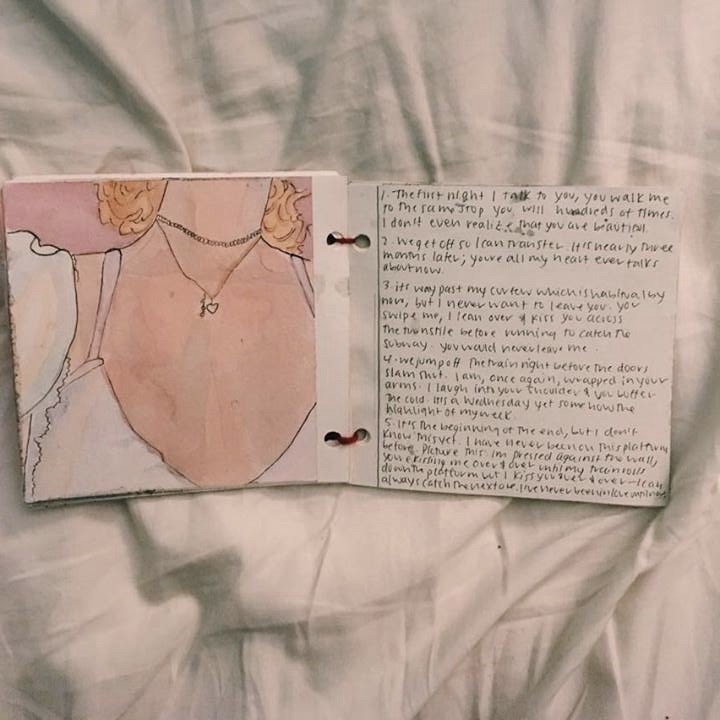 1. The first night I talk to you, you walk me
to the same stop you will hundreds of times.
I don't even realize that you are beautiful.
2. we get off so I can transfer. It's nearly three
months later; you're all my heart ever talks
about now.
3. its way past my curfew which is habitual by
now, but I never want to leave you. you
swipe me, I lean over & kiss you across
the turnstile before running to catch the
subway. you would never leave me.
4. we jump off the train right before the doors
slam shut. I am, once again, wrapped in your
arms. I laugh into your shoulder & you buffer
the cold. It's a Wednesday yet somehow the
highlight of my week.
5. It's the beginning of the end, but I don't
know this yet. I have never been on this platform
before. Picture this: im pressed against the wall,
you kissing me over & over until my train rolls
down the platform but I kiss you over & over - I can
always catch the next one. I've never been in love until now.